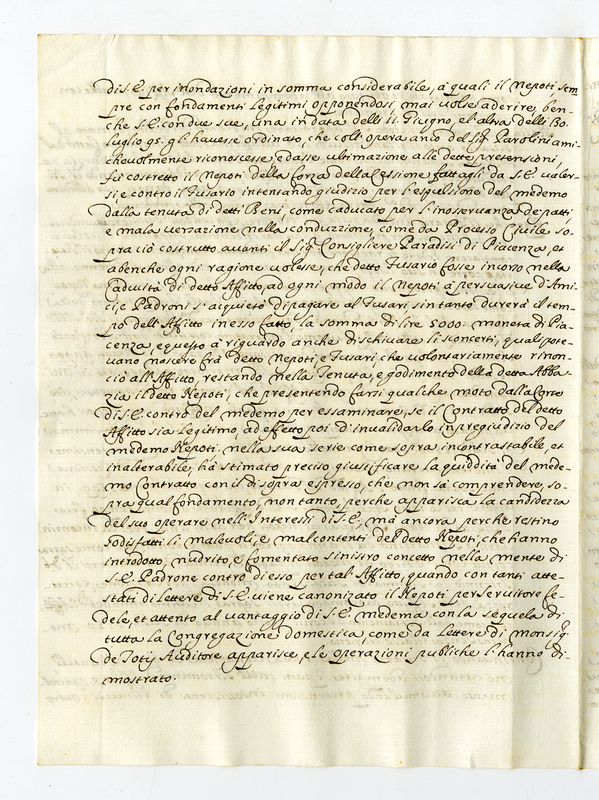 di S.E. per inondazioni in somma considerabile, a quali il Nepoti sem
pre con fondamenti legitimi opponendosi, mai volse aderire, ben-
che S.E. con due sue, una in data delli 11. Giugno, et altra delli 80.
luglio gli havesse ordinato, che coll' opera anco del Sig. Parolini ami
chevolmente riconoscesse, e dasse ultimazione alle dette pretensioni,
fù costretto il Nepoti della forza della Cessione fattagli da S.E. valer-
si, e contro il Fusario intentando giudizio per l'espulsione del medemo
dalla tenuta di detti Beni, come caducato per l'inoservanza de patti
e mala versazione nella conduzzione, come da Processo Civile so-
pra ciò costrutto avanti il Sig. Consigliere Paradisi di Piacenza, et
abenche ogni ragione volesse, che detto Fusario fosse incorso nella
Caducità di detto Affitto, ad ogni modo il Nepoti à persuasive d'Ami-
ci, e Padroni s'acquietò di pagare al Fusari sin tanto durerà il tem-
po dell' Affitto in esso fatto, la somma di lire 5000. moneta di Pia-
cenza, e questo à riguardo anche di schivare li sconcerti, quali pote-
vano nascere frà detto Nepoti, e Fusari, che volontariamente rinon-
ciò all' Affitto, restando nella Tenuta, e godimento della detta Abba-
zia il detto Nepoti, che presentendo farsi qualche moto dalla Corte
di S.E. contro del medemo per essaminare, se il Contratto del detto
Affitto sia legitimo, ad effetto poi d'invalidarlo in pregiudizio del
medemo Nepoti. nella sua serie come sopra incontrastabile, et
inalterabile, hà stimato preciso giustificare la quiddità del mede-
mo Contratto con il di sopra espresso, che non sà comprendere, so-
pra qual fondamento, non tanto, perche apparisca la candidezza
del suo operare nell' Interessi di S.E., mà ancora perche restino
sodisfatti li malevoli, e malcontenti del detto Nepoti, che hanno
introdotto, nudrito, e fomentato sinistro concetto nella mente di
S.E. Padrone contro di esso per tal' Affitto, quando con tanti atte-
stati di Lettere di S.E. viene canonizato il Nepoti per servitore fe-
dele, et attento al vantaggio di S.E. medema con la sequela di
tutta la Congregazione domestica, come da Lettere di monsig.
de Toty Auditore apparisce, e le operazioni publiche l'hanno di-
mostrato.